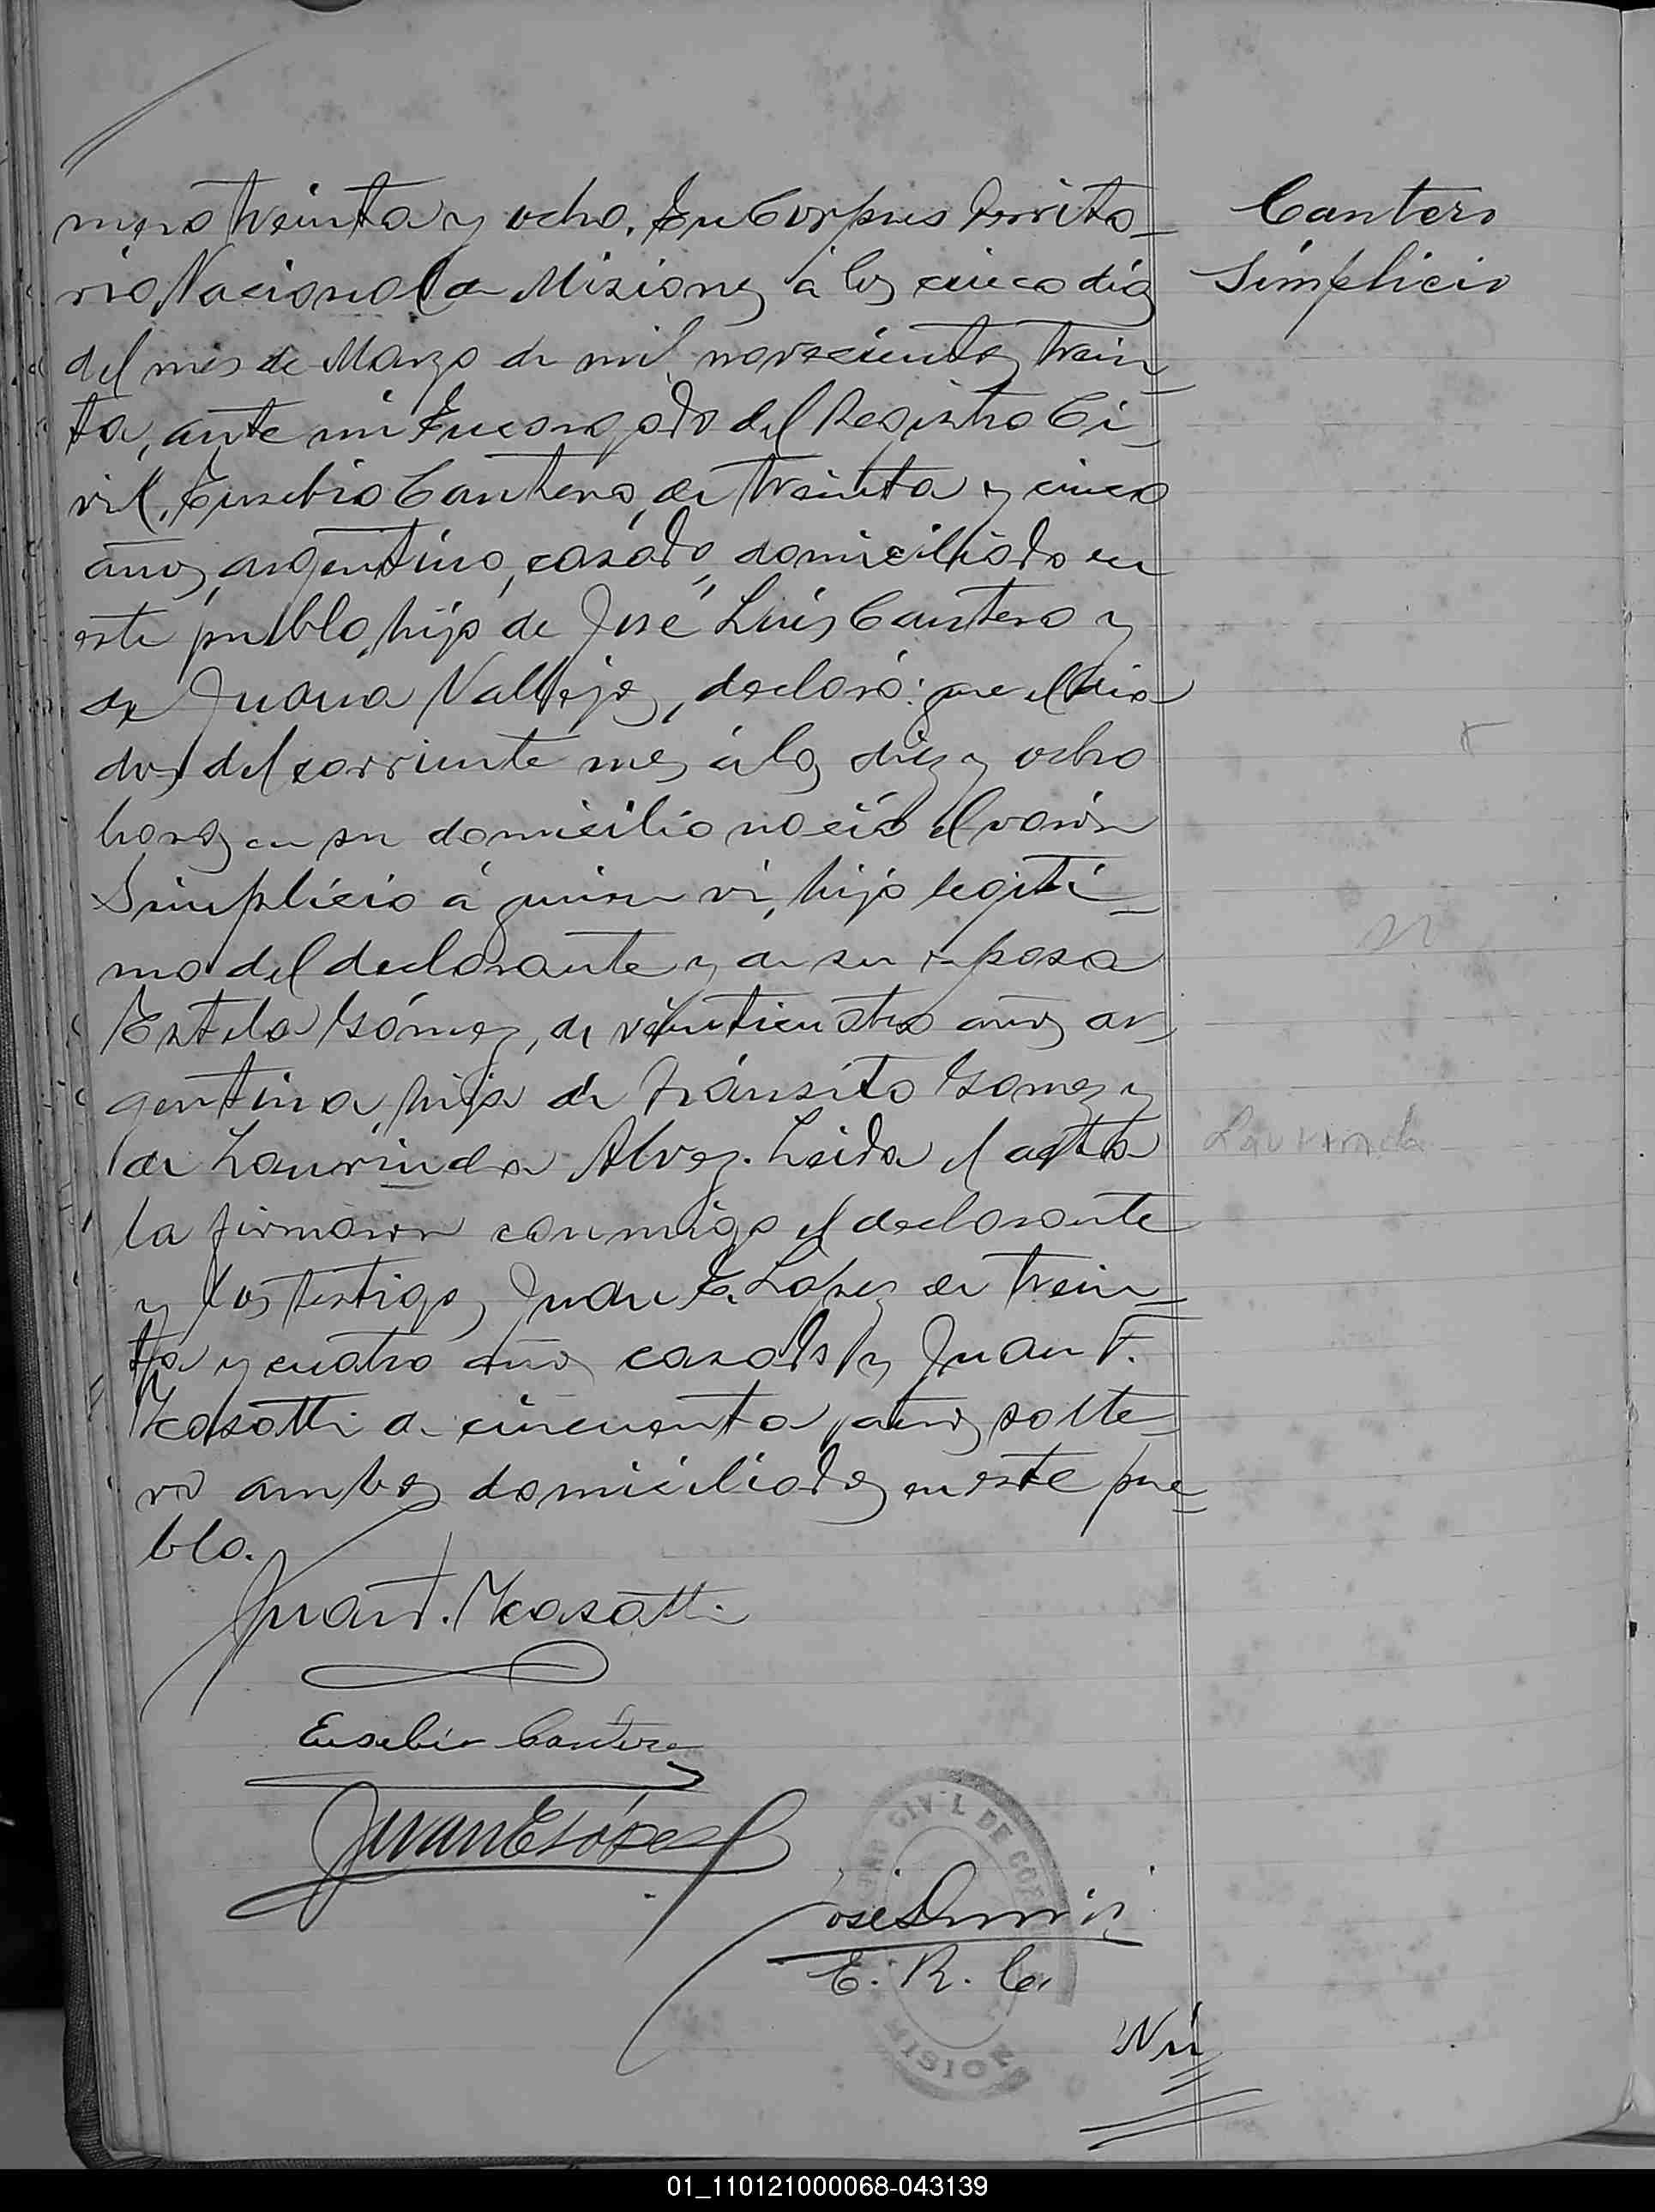 mero treinta y ocho. En Corpus Territo-
rio Nacional de Misiones á los cinco días
del mes de Marzo de mil novecientos trein
ta, ante mi Encargado del Registro Ci-
vil, Eusebio Cantero, de treinta y cinco
años, argentino, casado, domiciliado en
este pueblo, hijo de José Luis Cantero y
de Juana Vallejos, declaró: que el día
dos del corriente mes á las diez y ocho
horas en su domicilio nació el varón
Simplicio á quien vi, hijo legíti-
mo del declarante y de su esposa
Estela Gómez, de veinticuatro años ar-
gentina, hija de Tránsito Gomez y
de Laurinda Alvez. Leida el acta
la firmaron conmigo el declarante
y los testigos Juan E. Lopez de trein-
ta y cuatro años casado y Juan F.
de cincuenta años solte-
ro ambos domiciliados en este pue-
blo.
Juan F.
Eusebio Cantero
Juan E López
José
E. R. C.
Nú
Cantero
Simplicio
Laurinda
REGISTRO CIVIL DE CORPUS
MISIONES
01_110121000068-043139